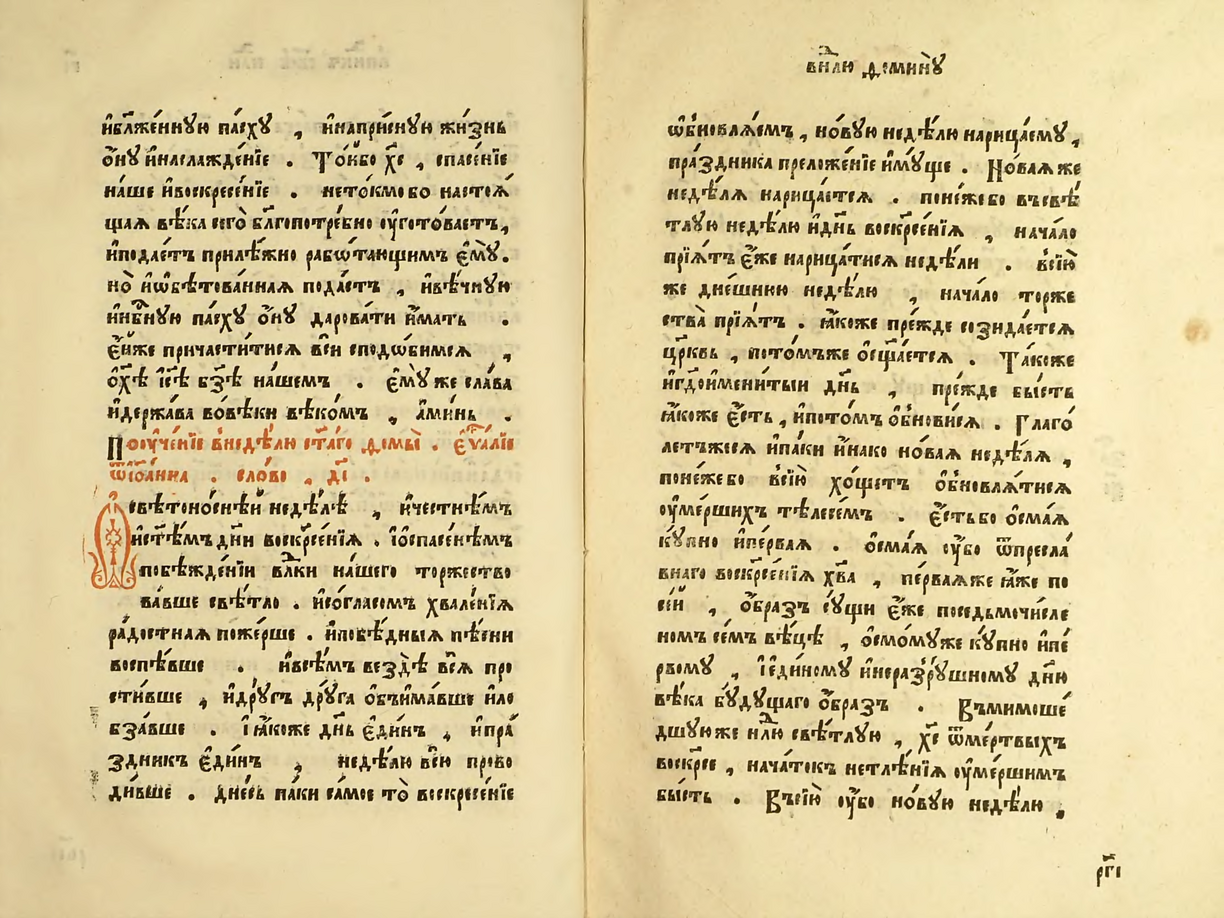 и҆бл҃же́ннꙋю па́схꙋ , и҆наприсе́нꙋю жи́знь
о҆́нꙋ и҆наслажде́нїе . То́кѡво хс҃е , спасе́нїе
на́ше и҆воскресе́нїе . нето́кмо бо настоѧ́
щаѧ вѣ́ка сего̀ бл҃гопотре́бно оу҆гото́ваетъ,
и҆подае́тъ прилѣ́жно рабѡ́тающимъ є҆мꙋ̀.
но̀ и҆ѡ҆бѣтова́ннаѧ пода́стъ , и҆вѣ́чнꙋю
и҆нбⷭ҇нꙋю па́схꙋ о҆́нꙋ дарова́ти и҆́мать .
є҆́йже причасти́тисѧ всѣ́и сподѡ́бимсѧ ,
о҆хрⷭ҇тѣ̀ і҆сѣ̀ бз҃ѣ на́шемъ . є҆мꙋ́же сла́ва
и҆держа́ва во́вѣки вѣко́мъ , а҆ми́нь .
Поѹче́нїе внедѣ́лю ст҃а́го ѳомы̀ . є҆ѵⷢ҇а́лїе
ѿіѡа́нна . сло́во , д҃і .
Освѣтоно́снѣй недѣ́лѣ , и҆честнѣ́мъ
и҆пстѣ́мъ дни воскресе́нїѧ . і҆ѡ҆спасе́нѣмъ
побѣжде́нїи влⷣки на́шего торжество
ва́вше свѣ́тло . и҆согласомъ хвале́нїѧ
ра́достнаѧ поже́рше . и҆побѣ́дныѧ пѣ́сни
воспѣ́вше . и҆всѣ́мъ вездѣ̀ всѧ̀ про
сти́вше , и҆дрꙋ́гъ дрꙋ́га ѡ҆б̾има́вше и҆ло
бза́вше . і҆ ꙗ҆́коже дн҃ь є҆ди́нъ , и҆пра́
здникъ є҆ди́нъ , недѣ́лю всю̀ прово
ди́вше . дне́сь па́ки са́мое то̀ воскресе́нїе
внⷣлю ѳоминꙋ̀
ѡ҆бновлѧ́емъ , но́вꙋю недѣ́лю нарица́емꙋ ,
пра́здника преложе́нїе и҆мꙋ́ще . Но́ваѧ же
недѣ́лѧ нарица́етсѧ . поне́жебо въсвѣ́
тлꙋю недѣ́лю и҆дн҃ь воскрⷭ҇е́нїѧ , нача́ло
прїѧ́тъ є҆́же нарица́тисѧ недѣ́ли . всїю̀
же дне́шнюю недѣ́лю , нача́ло торже
ства̀ прїѧ́тъ . ꙗ҆́коже пре́жде созида́етсѧ
цр҃ковь , пото́мъже ѡ҆сщ҃а́етсѧ . Та́коже
и҆гдⷭ҇оимени́тыи дн҃ь , пре́жде бы́сть
ꙗ҆́коже є҆́сть , и҆пото́мъ ѡ҆бнови́сѧ . Глаго́
летъжесѧ и҆па́ки и҆́нако но́ваѧ недѣ́лѧ ,
поне́жебо всїю̀ хо́щетъ ѡ҆бновлѧ́тисѧ
оу҆ме́ршихъ тѣлесе́мъ . є҆́стьбо ѻ҆сма́ѧ
кꙋ́пно и҆пе́рваѧ . ѻ҆сма́ѧ оу҆́бо ѿпресла́
внаго воскрⷭ҇е́нїѧ хв҃а , пе́рваѧже ꙗ҆́же по
се́й , ѻ҆́бразъ сꙋ́щи є҆́же поседьмочи́сле
номъ се́мъ вѣ́цѣ , ѻ҆смо́мꙋже кꙋ́пно и҆пе́
рвомꙋ , і҆еди́номꙋ и҆неразрꙋ́шномꙋ дн҃ю
вѣ́ка бꙋ́дꙋщаго ѻ҆́бразъ . Въмимоше́
дшꙋюже нⷣлю свѣ́тлꙋю , хс҃ ѿме́ртвыхъ
воскре́се , нача́токъ нетлѣ́нїѧ оу҆ме́ршимъ
бы́сть . Въсїю̀ оу҆́бо но́вꙋю недѣ́лю ,
рг҃і